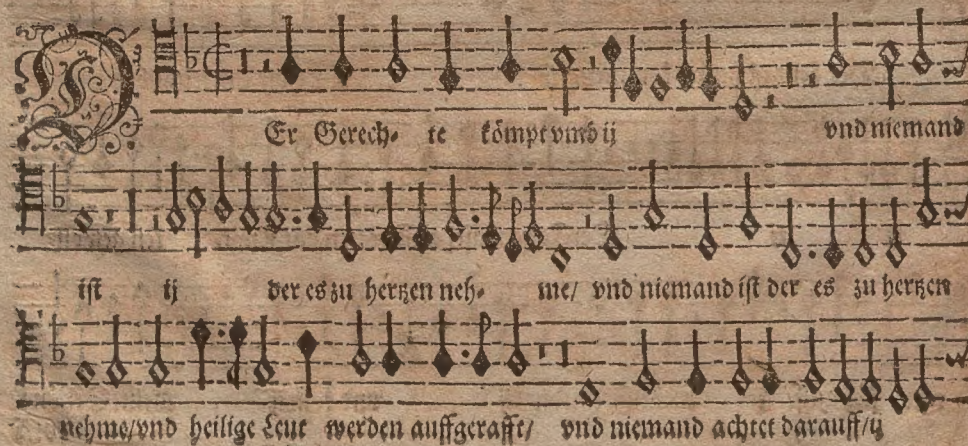 DEr Gerech- te kömpt vmb ij vnd niemand
ist ij der es zu hertzen neh- me/ vnd niemand ist der es zu hertzen
nehme/vnd heilige Leut werden auffgerafft/ vnd niemand achtet darauff/ij